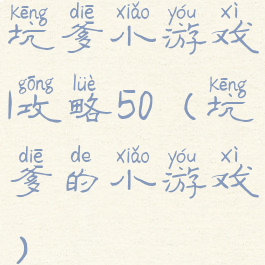 kēng diē xiǎo yóu xì
坑爹小游戏
gōng lüè kēng
|攻略50(坑
diē de xiǎo yóu xì
爹的小游戏
)